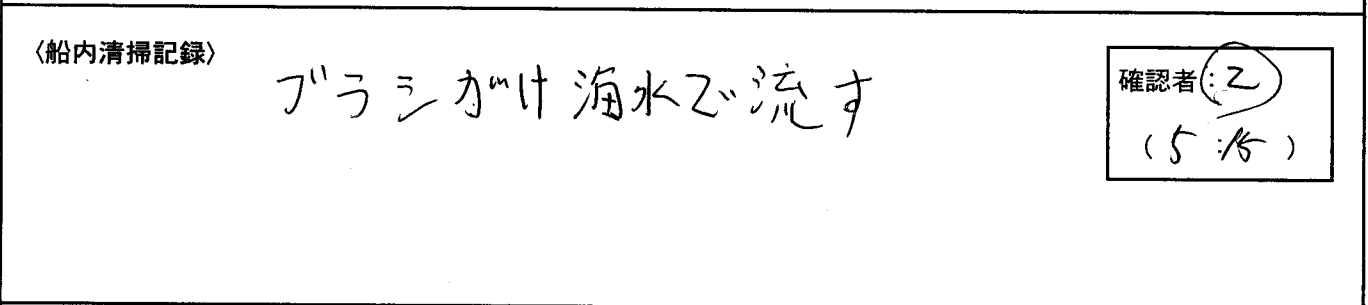 〈船内清掃記録〉
ブラシがけ 海水で流す
確認者:Z
(5:15)